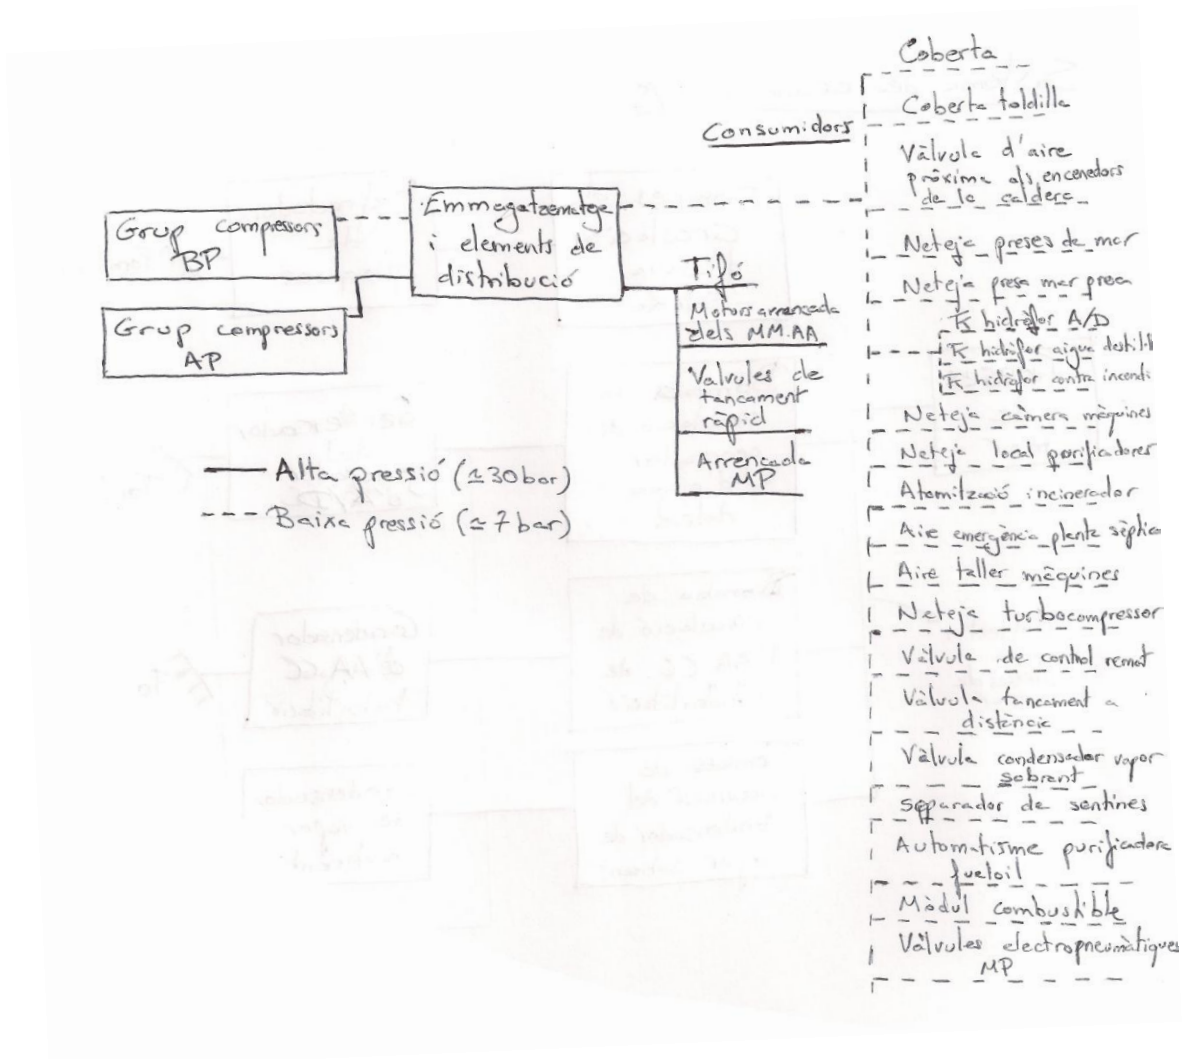 Grup compressors
BP
Grup compressors
AP
Emmagatzematge
i elements de
distribució
Consumidors
Tifó
Motors arrencada
dels MM.AA
Valvules de
tancament
ràpid
Arrencada
MP
Alta pressió (≃30 bar)
Baixa pressió (≃7 bar)
Coberta
Coberta toldilla
Vàlvula d'aire
pròxima als encenedors
de la caldera
Neteja preses de mar
Neteja presa mar proa
Tk hidròfor A/D
Tk hidròfor aigua destil·l
Tk hidròfor contra incendi
Neteja càmera màquines
Neteja local purificadores
Atomització incinerador
Aire emergència planta sèptica
Aire taller màquines
Neteja turbocompressor
Vàlvula de control remot
Vàlvula tancament a
distància
Vàlvula condensador vapor
sobrant
Separador de sentines
Automatisme purificadora
fueloil
Mòdul combustible
Vàlvules electropneumàtiques
MP